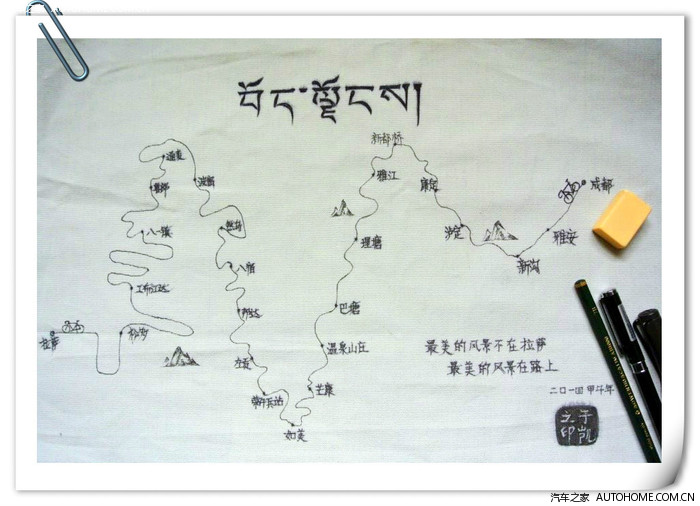 བོད་ལྗོངས།
新都桥
通麦
波密
雅江
康定
成都
鲁朗
八一镇
然乌
理塘
泸定
雅安
新沟
八宿
工布江达
邦达
巴塘
拉萨
松多
温泉山庄
左贡
芒康
荣许兵站
如美
最美的风景不在拉萨
最美的风景在路上
二〇一四 甲午年
于凯之印
汽车之家 AUTOHOME.COM.CN